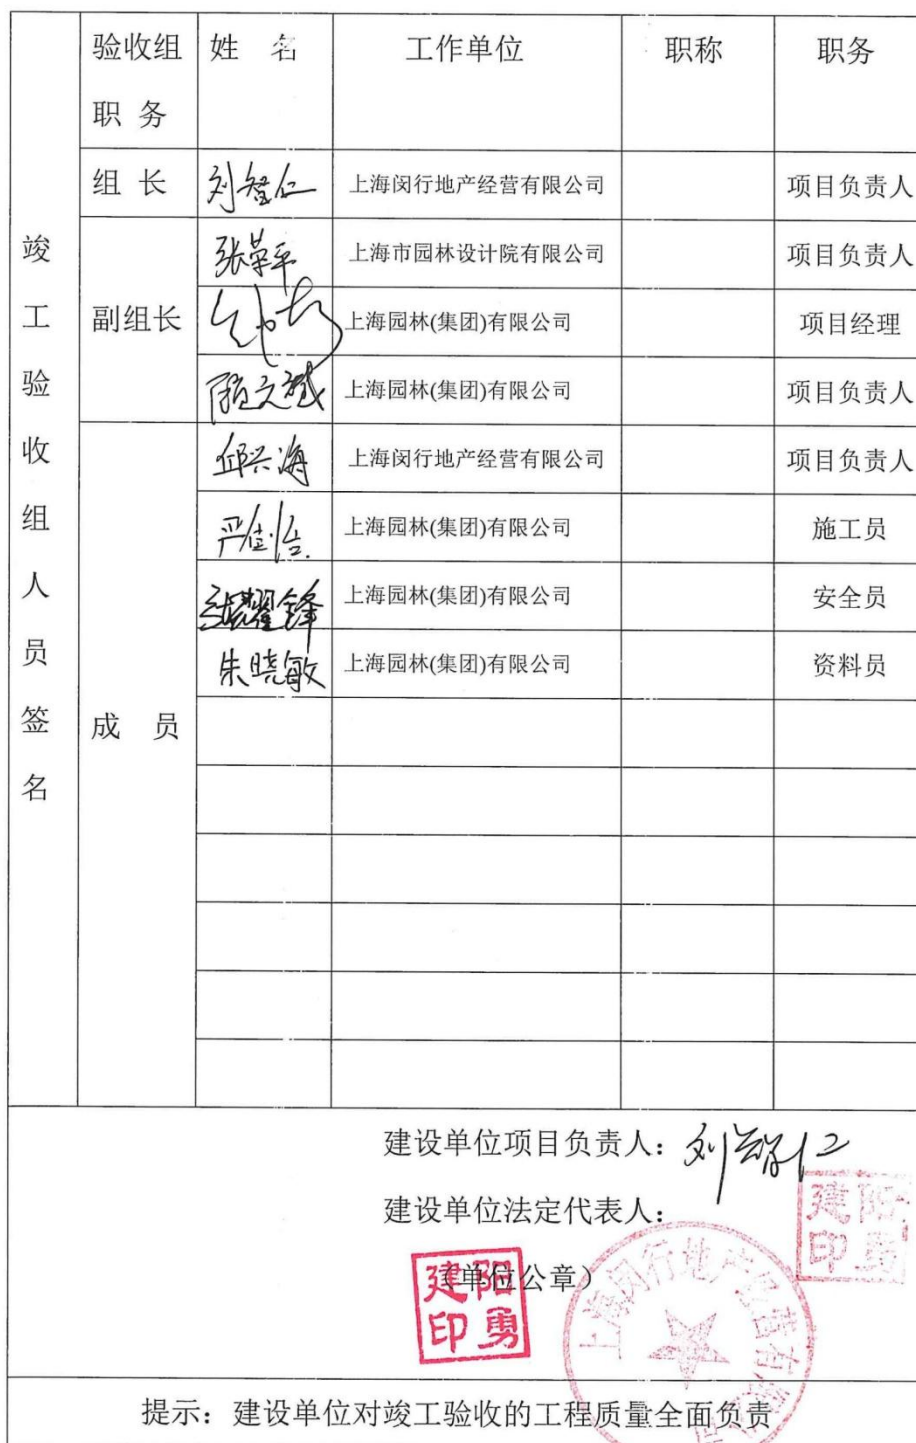 竣工验收组人员签名
验收组职务 姓 名 工作单位 职称 职务
组 长 刘智仁 上海闵行地产经营有限公司 项目负责人
副组长
张荣平 上海市园林设计院有限公司 项目负责人
上海园林(集团)有限公司 项目经理
顾文斌 上海园林(集团)有限公司 项目负责人
成 员
邱兴海 上海闵行地产经营有限公司 项目负责人
上海园林(集团)有限公司 施工员
张耀锋 上海园林(集团)有限公司 安全员
朱晓敏 上海园林(集团)有限公司 资料员
建设单位项目负责人：刘智仁
建设单位法定代表人：
阳勇建印
(单位公章)
阳勇建印
上海闵行地产经营有限公司
提示：建设单位对竣工验收的工程质量全面负责